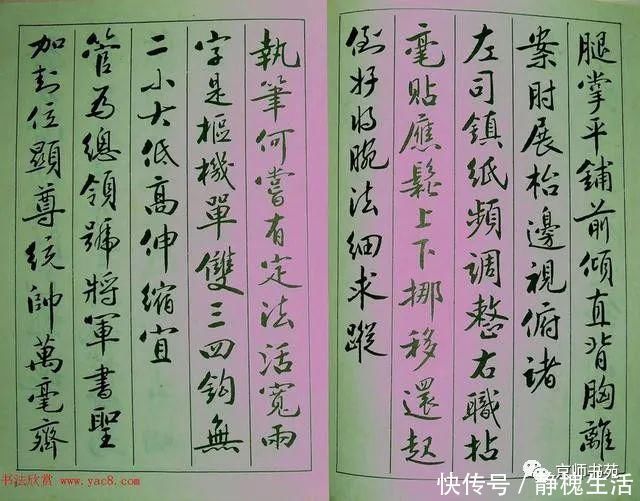 腿掌平鋪前傾直背胸離
案肘展枱邊視俯諸
左司鎮紙頻調整右職拈
毫貼應鬆上下挪移還起
倒好將腕法細求蹤
執筆何嘗有定法活寬兩
字是樞機單雙三四鈎無
二小大低高伸縮宜
管為總領號將軍書聖
加封位顯尊統帥萬毫齊
书法欣赏 www.yac8.com
京师书苑
快传号/静槐生活